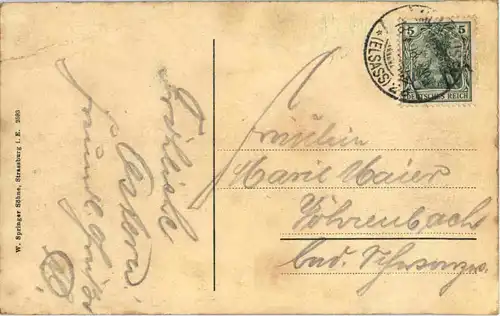 W. Springer Söhne, Strassburg i. E. 2085
Fröhliche
Ostern!
Fräulein
Marie Maier
Vöhrenbach
bad. Schwarzw.
5 5
DEUTSCHES REICH
(ELSASS)